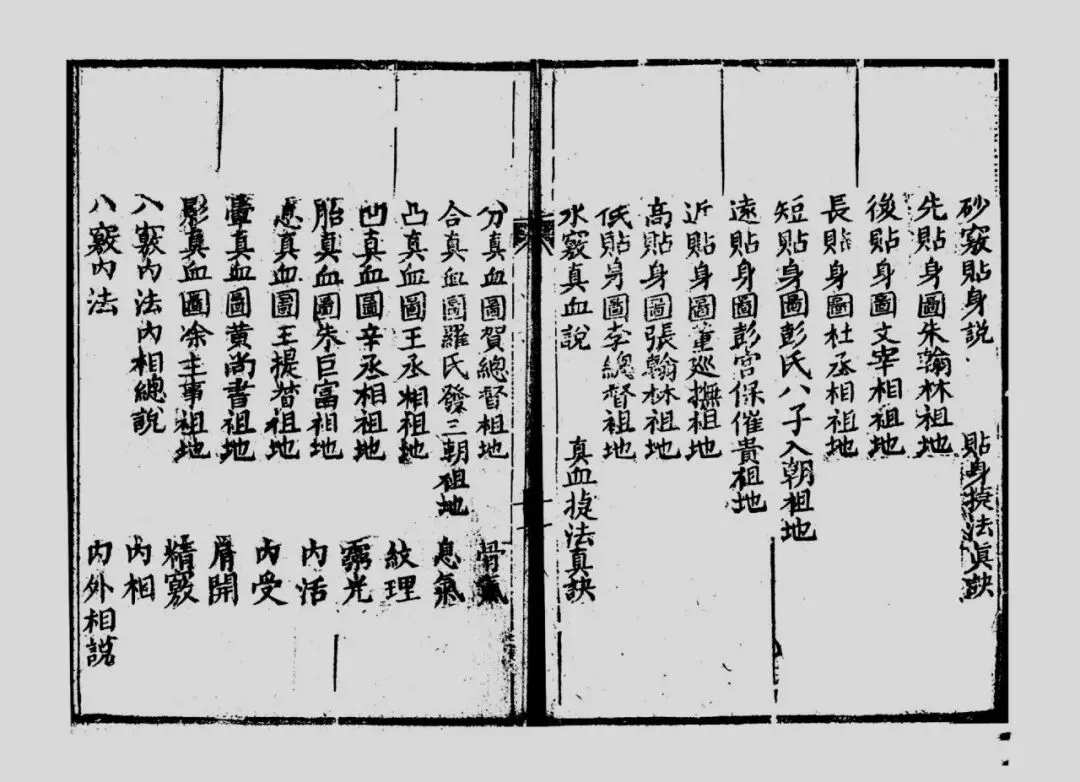 砂竅貼身說 貼身捷法真訣
先貼身圖朱翰林祖地
後貼身圖文宰相祖地
長貼身圖杜丞相祖地
短貼身圖彭氏八子入朝祖地
遠貼身圖彭宮保催貴祖地
近貼身圖董巡撫祖地
高貼身圖張翰林祖地
低貼身圖李總督祖地
水竅真血說 真血捷法真訣
分真血圖賀總督祖地 骨氣
合真血圖羅氏發三朝祖地 息氣
凸真血圖王丞相祖地 紋理
凹真血圖辛丞相祖地 光
胎真血圖朱巨富祖地 內活
息真血圖王提督祖地 內受
真血圖黃尚書祖地 開
影真血圖凃主事祖地 精竅
入竅內法內相總說 內相
八竅內法 內外相說